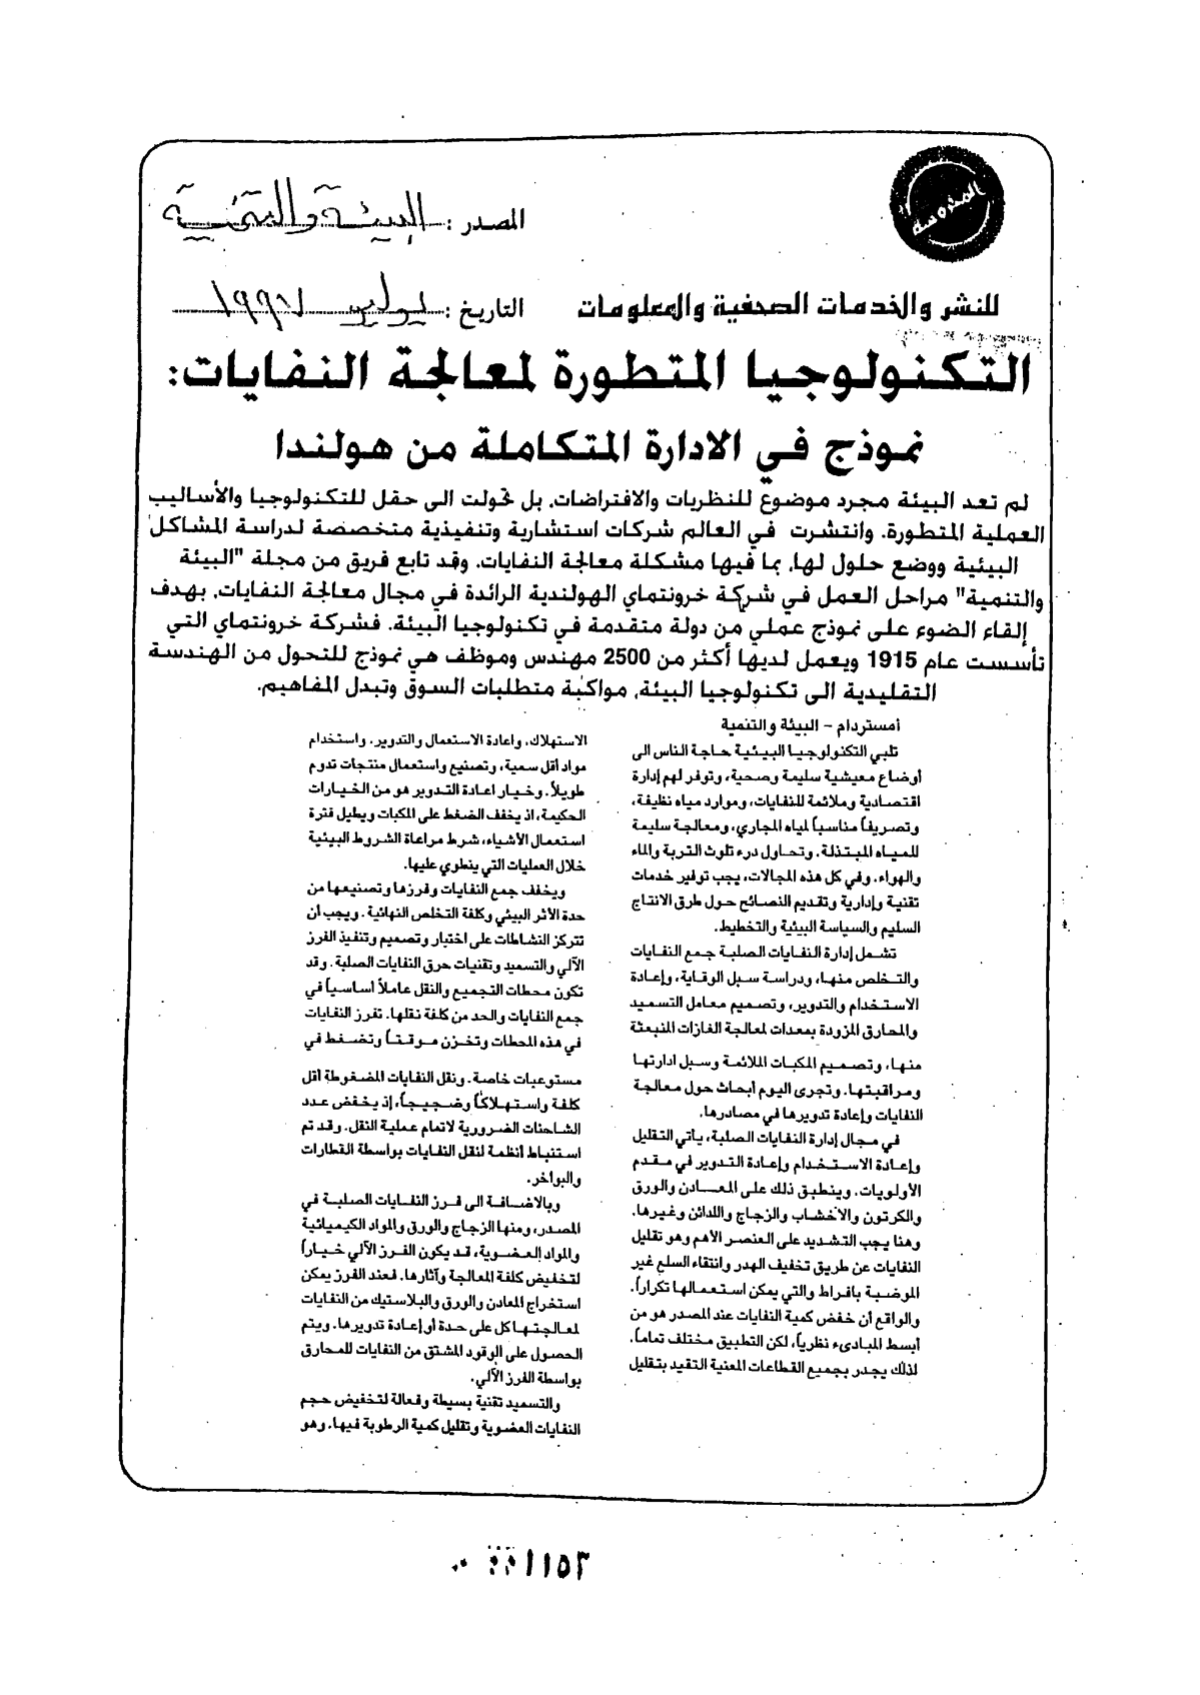 المصدر : البيئة والتنمية
المحروسة
للنشر والخدمات الصحفية والمعلومات
التاريخ : يوليو ١٩٩٧
التكنولوجيا المتطورة لمعالجة النفايات:
نموذج في الادارة المتكاملة من هولندا
لم تعد البيئة مجرد موضوع للنظريات والافتراضات، بل تحولت الى حقل للتكنولوجيا والأساليب
العملية المتطورة. وانتشرت في العالم شركات استشارية وتنفيذية متخصصة لدراسة المشاكل
البيئية ووضع حلول لها، بما فيها مشكلة معالجة النفايات. وقد تابع فريق من مجلة "البيئة
والتنمية" مراحل العمل في شركة خرونتماي الهولندية الرائدة في مجال معالجة النفايات، بهدف
إلقاء الضوء على نموذج عملي من دولة متقدمة في تكنولوجيا البيئة. فشركة خرونتماي التي
تأسست عام 1915 ويعمل لديها أكثر من 2500 مهندس وموظف هي نموذج للتحول من الهندسة
التقليدية الى تكنولوجيا البيئة، مواكبة متطلبات السوق وتبدل المفاهيم.
أمستردام - البيئة والتنمية
تلبي التكنولوجيا البيئية حاجة الناس الى
أوضاع معيشية سليمة وصحية، وتوفر لهم إدارة
اقتصادية وملائمة للنفايات، وموارد مياه نظيفة،
وتصريفاً مناسباً لمياه المجاري، ومعالجة سليمة
للمياه المبتذلة. وتحاول درء تلوث التربة والماء
والهواء. وفي كل هذه المجالات، يجب توفير خدمات
تقنية وإدارية وتقديم النصائح حول طرق الانتاج
السليم والسياسة البيئية والتخطيط.
تشمل إدارة النفايات الصلبة جمع النفايات
والتخلص منها، ودراسة سبل الوقاية، وإعادة
الاستخدام والتدوير، وتصميم معامل التسميد
والمحارق المزودة بمعدات لمعالجة الغازات المنبعثة
منها، وتصميم المكبات الملائمة وسبل ادارتها
ومراقبتها. وتجرى اليوم أبحاث حول معالجة
النفايات وإعادة تدويرها في مصادرها.
في مجال إدارة النفايات الصلبة، يأتي التقليل
وإعادة الاستخدام وإعادة التدوير في مقدم
الأولويات. وينطبق ذلك على المعادن والورق
والكرتون والاخشاب والزجاج واللدائن وغيرها.
وهنا يجب التشديد على العنصر الأهم وهو تقليل
النفايات عن طريق تخفيف الهدر وانتقاء السلع غير
الموضبة بافراط والتي يمكن استعمالها تكراراً.
والواقع أن خفض كمية النفايات عند المصدر هو من
أبسط المبادىء نظرياً، لكن التطبيق مختلف تماماً.
لذلك يجدر بجميع القطاعات المعنية التقيد بتقليل
الاستهلاك، واعادة الاستعمال والتدوير، واستخدام
مواد أقل سمية، وتصنيع واستعمال منتجات تدوم
طويلاً. وخيار اعادة التدوير هو من الخيارات
الحكيمة، اذ يخفف الضغط على المكبات ويطيل فترة
استعمال الأشياء، شرط مراعاة الشروط البيئية
خلال العمليات التي ينطوي عليها.
ويخفف جمع النفايات وفرزها وتصنيعها من
حدة الأثر البيئي وكلفة التخلص النهائية. ويجب أن
تتركز النشاطات على اختبار وتصميم وتنفيذ الفرز
الآلي والتسميد وتقنيات حرق النفايات الصلبة. وقد
تكون محطات التجميع والنقل عاملاً أساسياً في
جمع النفايات والحد من كلفة نقلها. تفرز النفايات
في هذه المحطات وتخزن موقتاً وتضغط في
مستوعبات خاصة. ونقل النفايات المضغوطة أقل
كلفة واستهلاكاً وضجيجاً، إذ يخفض عدد
الشاحنات الضرورية لاتمام عملية النقل. وقد تم
استنباط أنظمة لنقل النفايات بواسطة القطارات
والبواخر.
وبالاضافة الى فرز النفايات الصلبة في
المصدر، ومنها الزجاج والورق والمواد الكيميائية
والمواد العضوية، قد يكون الفرز الآلي خياراً
لتخفيض كلفة المعالجة وآثارها. فعند الفرز يمكن
استخراج المعادن والورق والبلاستيك من النفايات
لمعالجتها كل على حدة أو إعادة تدويرها. ويتم
الحصول على الوقود المشتق من النفايات للمحارق
بواسطة الفرز الآلي.
والتسميد تقنية بسيطة وفعالة لتخفيض حجم
النفايات العضوية وتقليل كمية الرطوبة فيها. وهو
١١٥٣